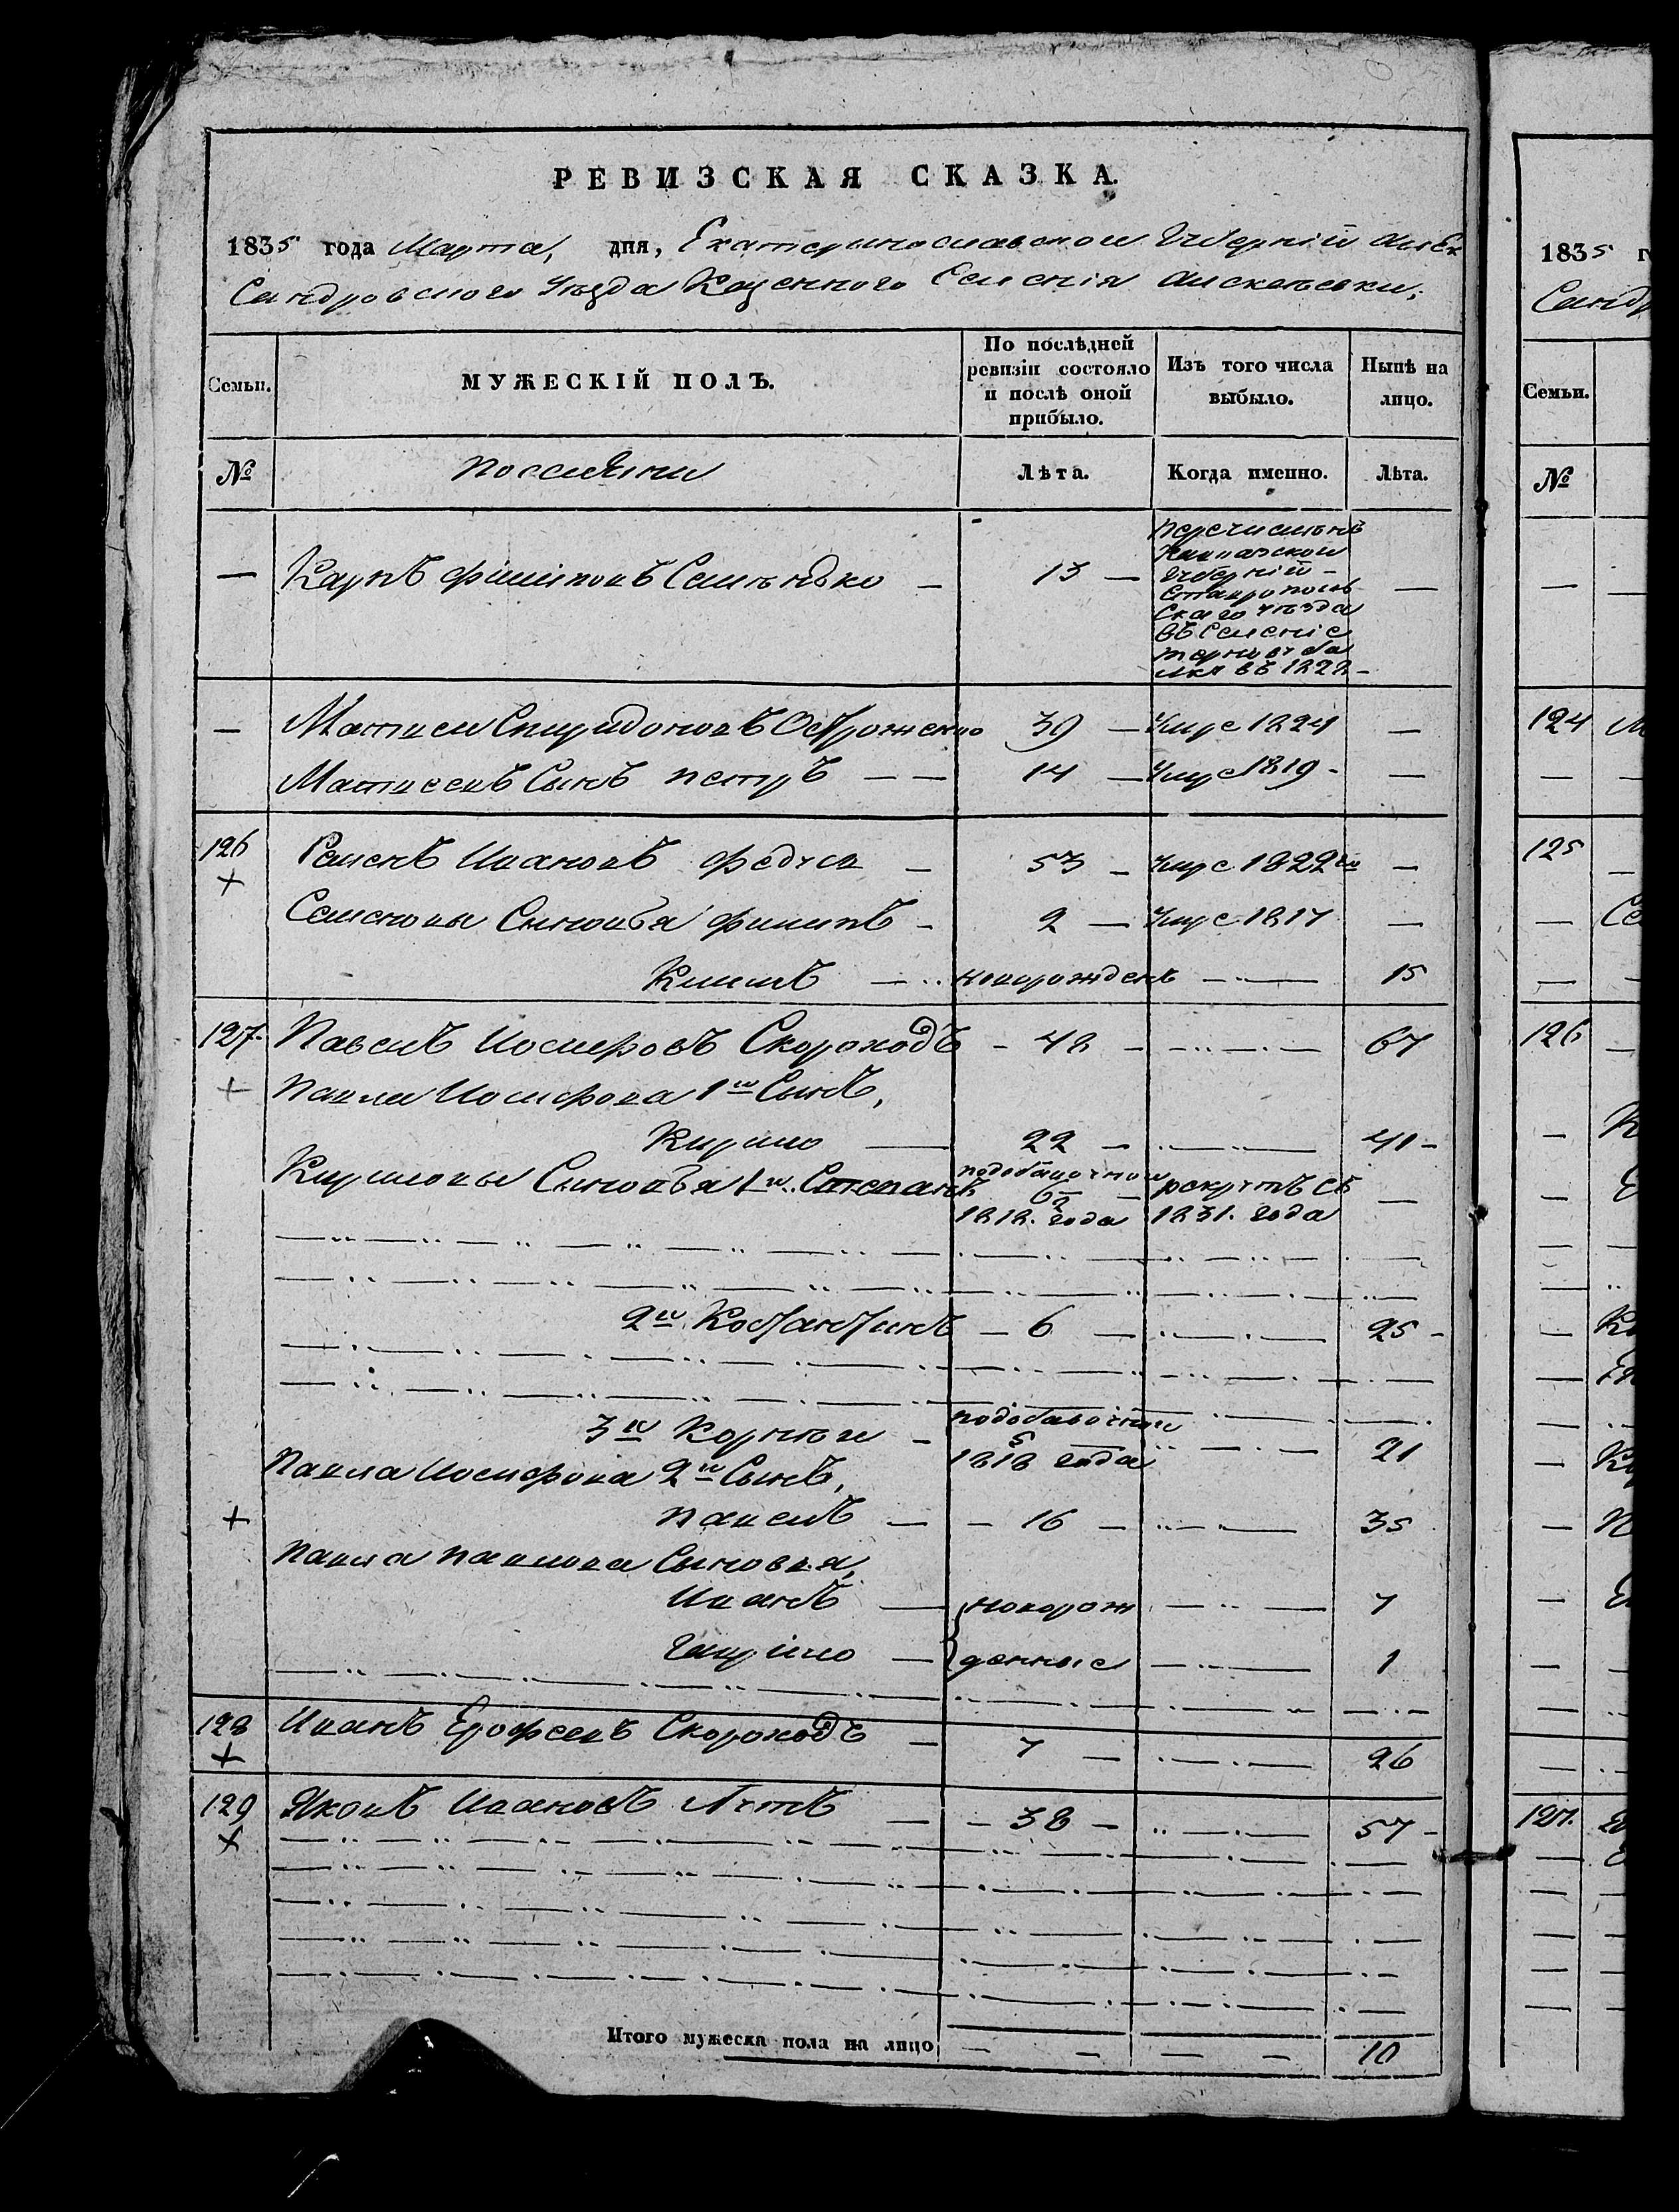 РЕВИЗСКАЯ СКАЗКА.
1835 года Марта, дня, Екатеринославской Губерній Алек
Сандровского Уѣзда Казенного Селенія
Семьи.
МУЖЕСКІЙ ПОЛЪ.
По послѣдней ревизіи состояло и послѣ оной прибыло.
Изъ того числа выбыло.
Нынѣ на лицо.
№
поселяни
Лѣта.
Когда именно.
Лѣта.
— Карпъ Филиповъ — 13 — перечисленъ
Кавказской
Губерній –
Ставрополь
Скаго уѣзда
въ Селеніе
въ 1828 –
— Матвей Спиридоновъ 39 — Умре 1824 —
Матвеевъ Сынъ петръ — — 14 — Умре 1819 - —
126 Семенъ Ивановъ — 53 – Умре 1822го —
+
Семеновы Сыновья филипъ – 2 — Умре 1817 —
Климъ — новорожденъ — 15
127. Павелъ Иосифовъ Скороходъ – 48 — 67
+ Павла Иосифова 1й Сынъ,
Кирило — 22 — 41 –
Кириловы Сыновья 1й Степанъ подобавочной рекрутъ съ —
1818. года 1831. года
2й Костантинъ – 6 — 25 –
3й Корнюй – подобавочной
5
1818 года 21
Павла Иосифова 2й Сынъ,
+ павелъ — – 16 — 35
павла павлова Сыновья,
Иванъ — новорож 7
Гаврило — денные 1
128 Иванъ Ерофеевъ Скороходъ — 7 — 26
+
129 Яковъ Ивановъ — – 38 – 57 –
+
Итого мужеска пола на лицо — — — — 10
1835 г
Санд
Семьи.
№
124
125
126
127.